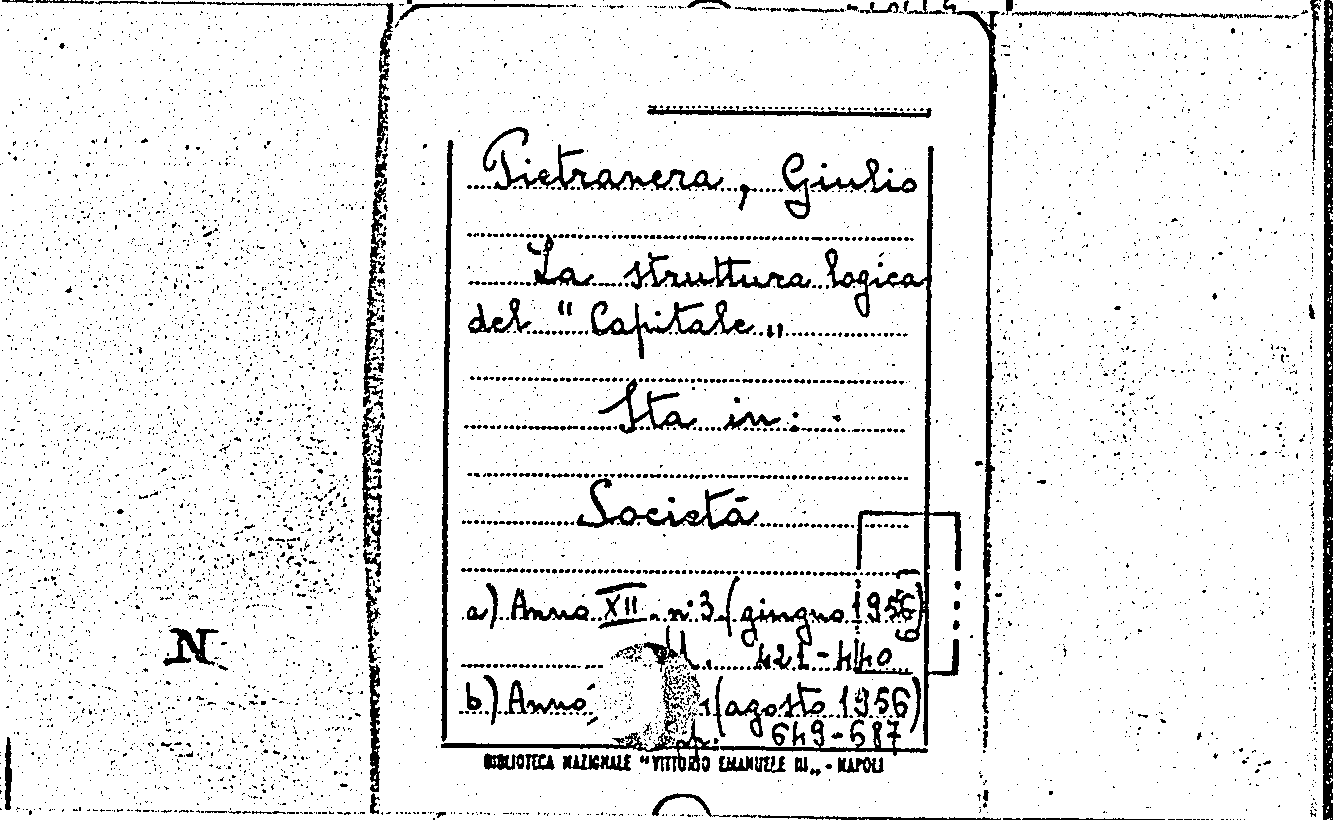 Pietranera, Giulio
La struttura logica
del "Capitale"
Sta in:
Società
a) Anno XII. n° 3. (giugno 1956)
421-440
b) Anno (agosto 1956)
pp. 649-687
BIBLIOTECA NAZIONALE "VITTORIO EMANUELE III" - NAPOLI
N